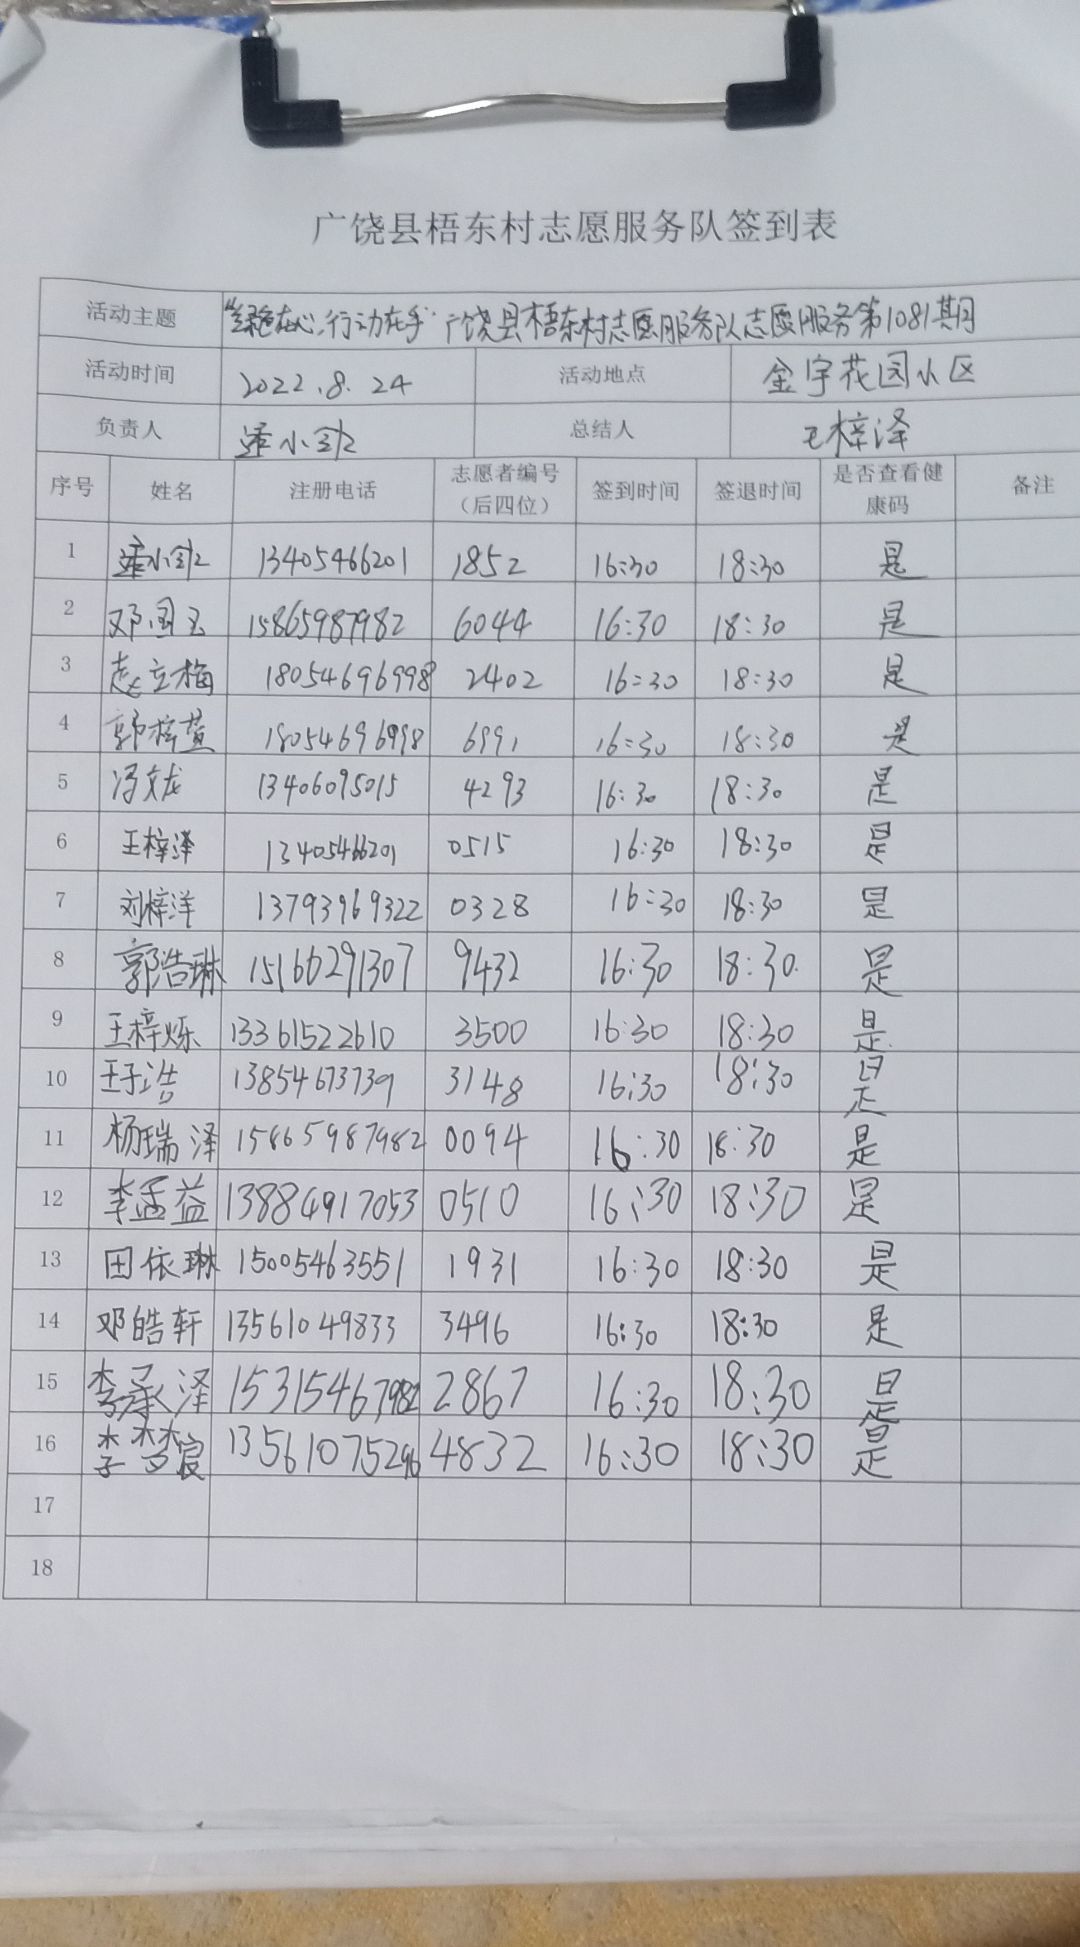 广饶县梧东村志愿服务队签到表
活动主题 "绿色在心、行动在手"广饶县梧东村志愿服务队志愿服务第1081期
活动时间 2022.8.24 活动地点 金宇花园小区
负责人 小 总结人 王梓泽
序号 姓名 注册电话 志愿者编号（后四位） 签到时间 签退时间 是否查看健康码 备注
1 小 13405466201 1852 16:30 18:30 是
2 邓国玉 15865987982 6044 16:30 18:30 是
3 赵立梅 18054696998 2402 16:30 18:30 是
4 郭梓萱 18054696998 6991 16:30 18:30 是
5 冯文龙 13406095015 4293 16:30 18:30 是
6 王梓泽 13405466201 0515 16:30 18:30 是
7 刘梓洋 13793969322 0328 16:30 18:30 是
8 郭浩琳 15166291307 9432 16:30 18:30 是
9 王梓烁 13361522610 3500 16:30 18:30 是
10 王子浩 13854673739 3148 16:30 18:30 是
11 杨瑞泽 15865987982 0094 16:30 18:30 是
12 李孟益 13884917053 0510 16:30 18:30 是
13 田依琳 15005463551 1931 16:30 18:30 是
14 邓皓轩 13561049833 3496 16:30 18:30 是
15 李承泽 15315467982 2867 16:30 18:30 是
16 李梦宸 13561075296 4832 16:30 18:30 是
17
18